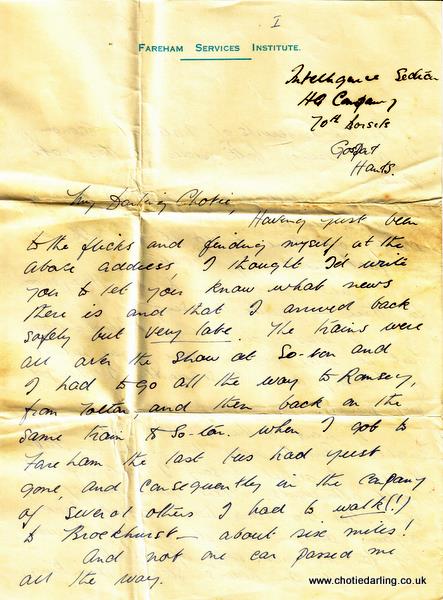 I
FAREHAM SERVICES INSTITUTE.
Intelligence Section
HQ Company
70th Dorsets
Gosport
Hants.
My Darling Chotie,
Having just been
to the flicks and finding myself at the
above address, I thought I'd write
you to let you know what news
there is and that I arrived back
safely but very late. The trains were
all over the show at So-ton and
I had to go all the way to Romsey,
from Totton, and then back on the
same train to So-ton. When I got to
Fareham the last bus had just
gone, and consequently in the company
of several others I had to walk(!)
to Brockhurst – about six miles!
And not one car passed me
all the way.
www.chotiedarling.co.uk